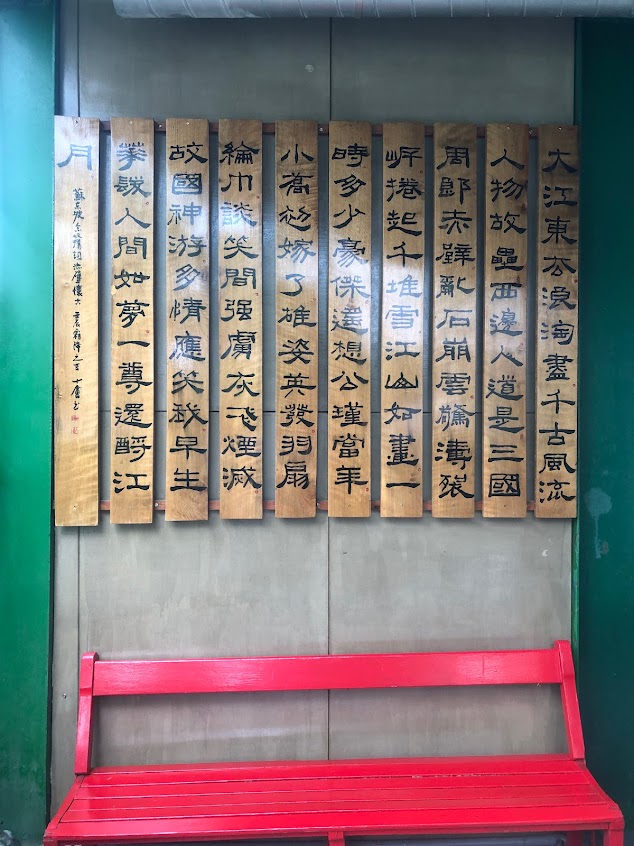 大江東去浪淘盡千古風流
人物故壘西邊人道是三國
周郎赤壁亂石崩雲驚濤裂
岸捲起千堆雪江山如畫一
時多少豪傑遙想公瑾當年
小喬初嫁了雄姿英發羽扇
綸巾談笑間強虜灰飛煙滅
故國神游多情應笑我早生
華髮人間如夢一尊還酹江
月
蘇東坡念奴嬌詞赤壁懷古